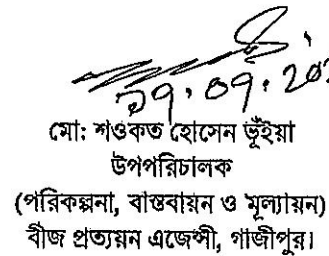 মো: শওকত হোসেন ভূঁইয়া
উপপরিচালক
(পরিকল্পনা, বাস্তবায়ন ও মূল্যায়ন)
বীজ প্রত্যয়ন এজেন্সী, গাজীপুর।